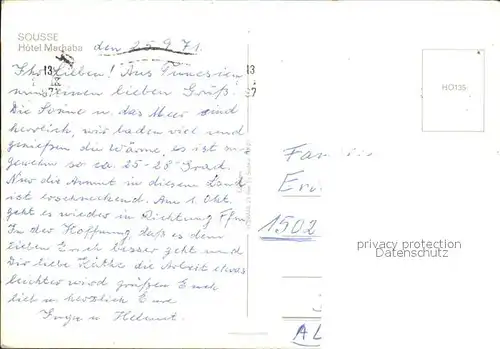 SOUSSE
Hôtel Marhaba den 25.9.71.
Ihr Lieben! Aus Tunesien
nun einen lieben Gruß.
Die Sonne u. das Meer sind
herrlich, wir baden viel und
genießen die Wärme, es ist
so ca. 25-28 Grad.
Nur die Armut in diesem Land
ist erschreckend. Am 1. Okt.
geht es wieder in Richtung Ffm.
In der Hoffnung, daß es dem
lieben Erich besser geht und
Dir liebe Käthe die Arbeit etwas
leichter wird grüßen Euch
lieb u. herzlich Eure
Inge u. Helmut.
HO135
Fam
Er
1502
privacy protection
Datenschutz